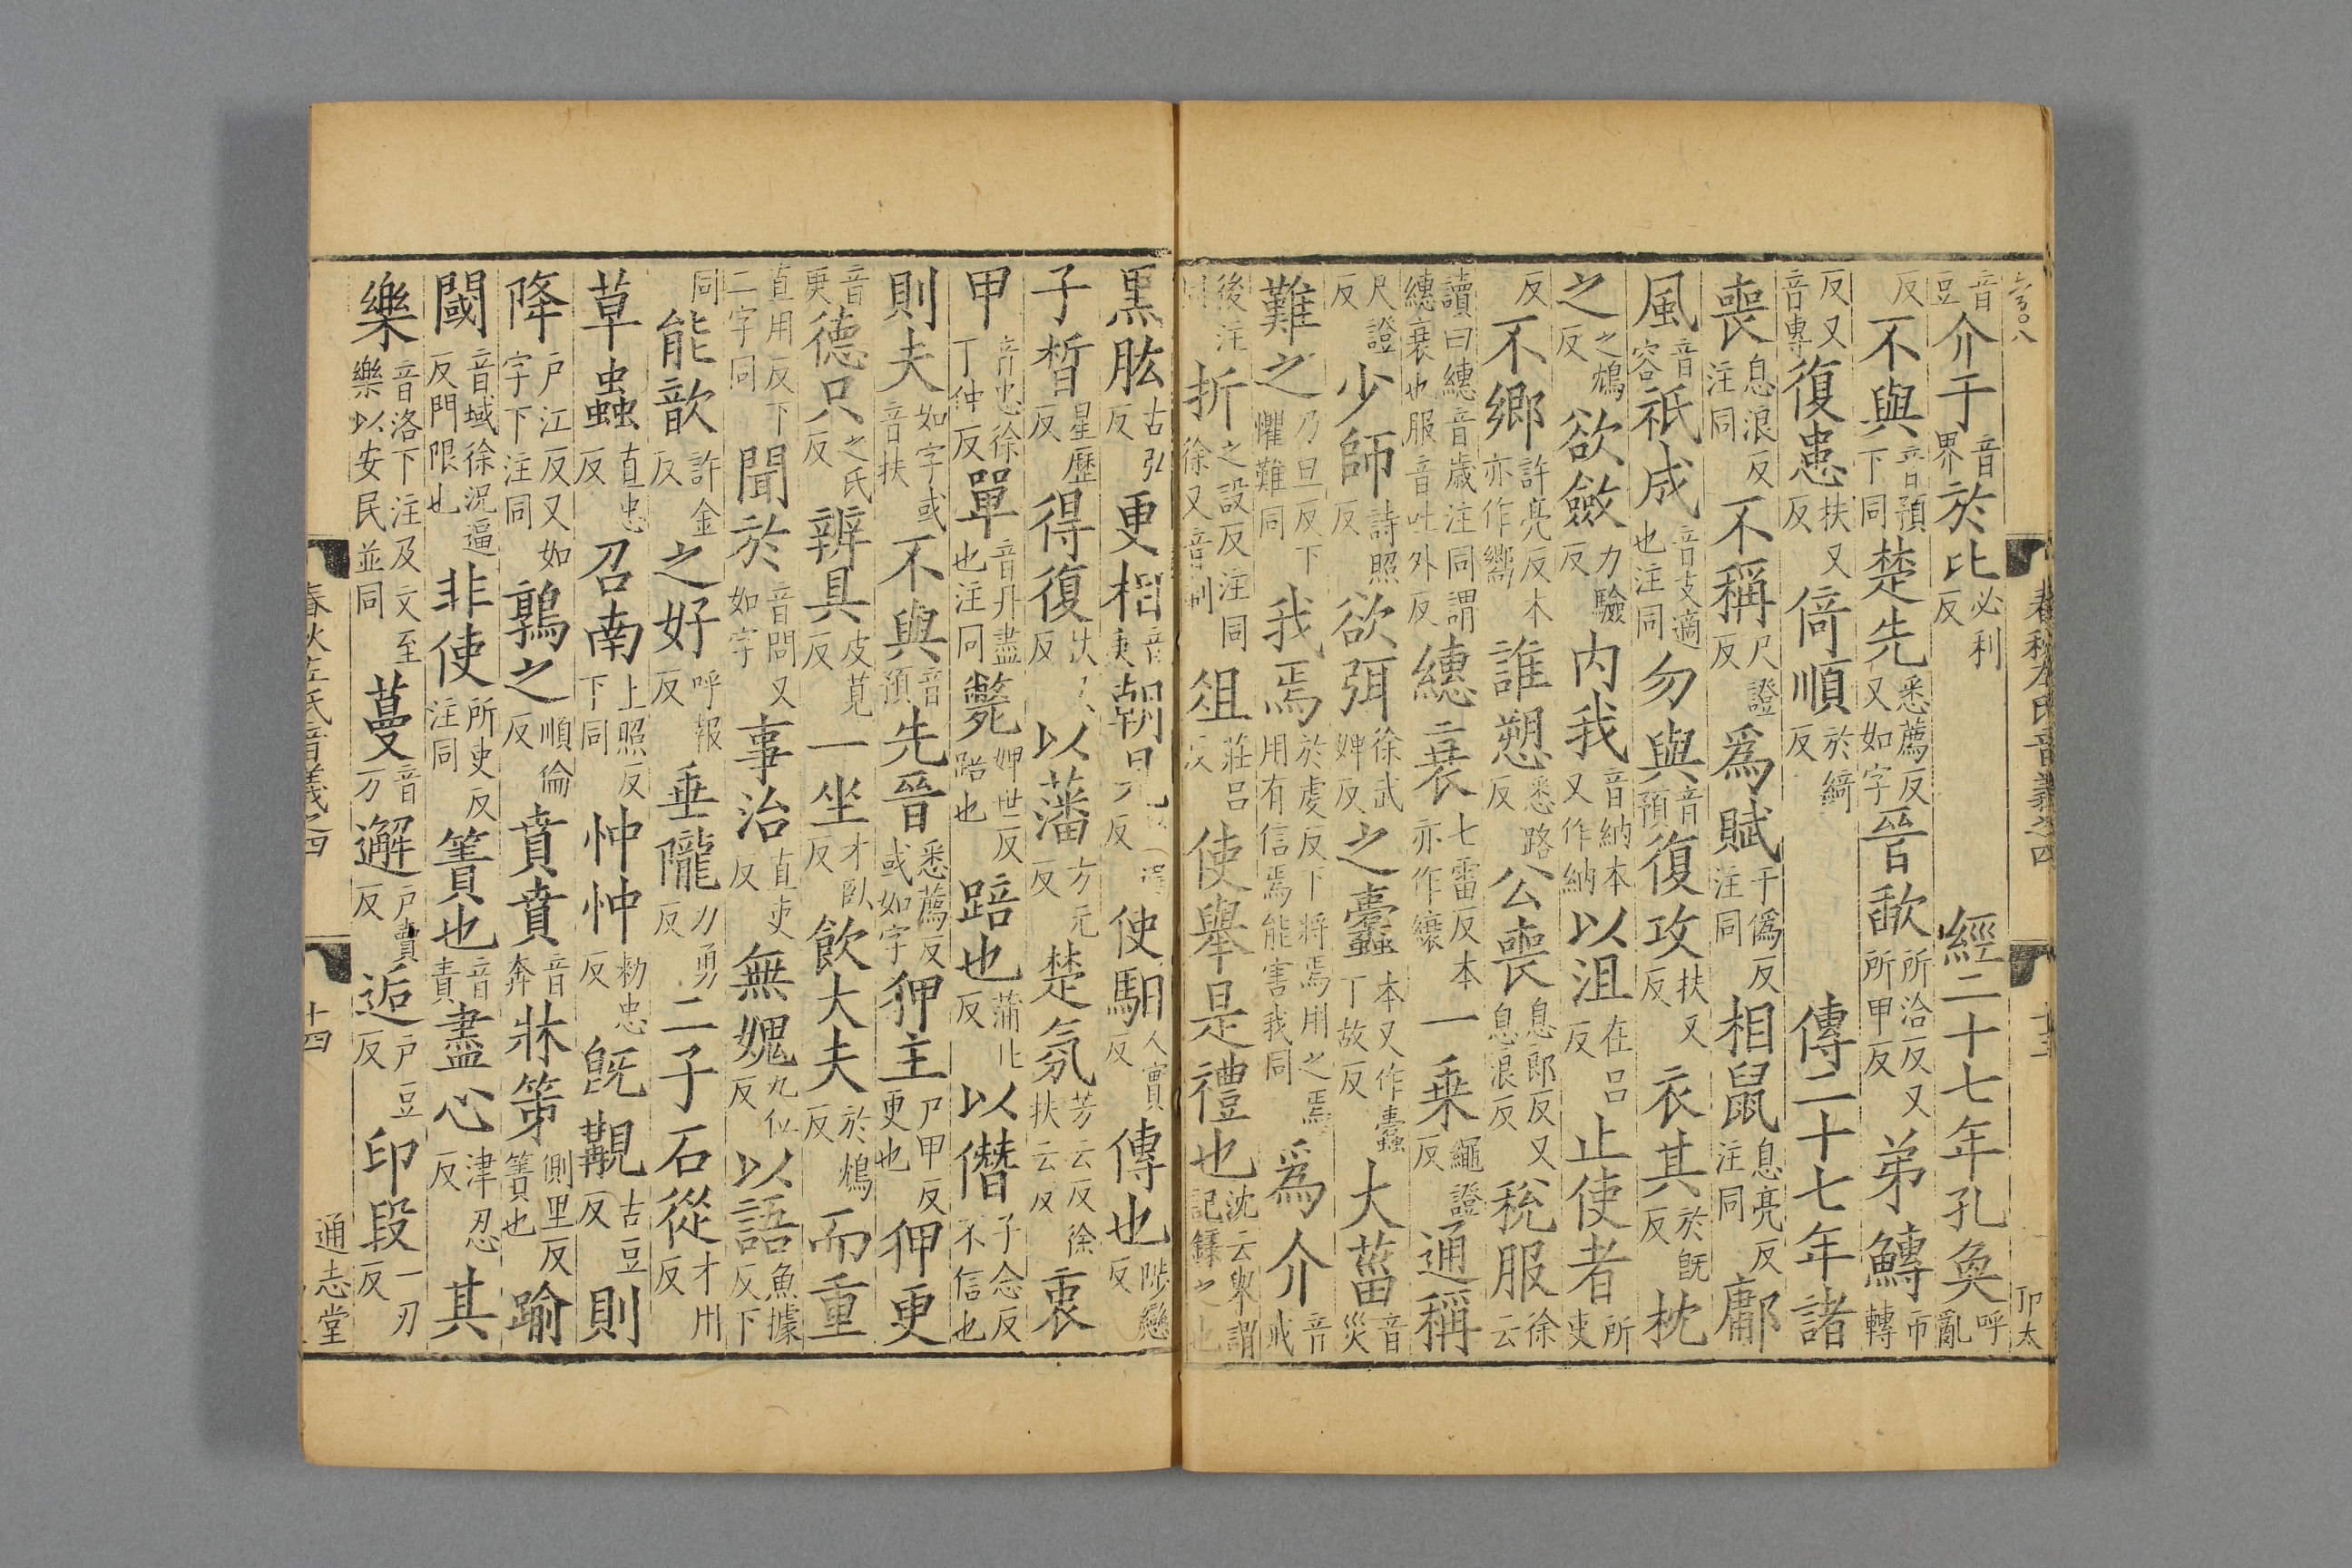 春秋左氏音義之四 十三
音豆介于音界於比必利反 經二十七年孔奐呼亂
反不與音預下同楚先悉薦反又如字晉歃所洽反又所甲反弟鱄市轉
反又音專復患扶又反倚順於綺反 傳二十七年諸
喪息浪反注同不稱尺證反爲賦于僞反注同相鼠息亮反注同鄘
風音容祇成音支適也注同勿與音預復攻扶又反衣其於旣反枕
之之鴆反欲斂力驗反内我音納本又作納以沮在呂反止使者所吏
反不鄉許亮反本亦作嚮誰愬悉路反公喪息郎反又息浪反稅服徐云
讀曰繐音歲注同謂繐衰也服音吐外反繐衰七雷反本亦作縗一乗繩證反通稱
尺證反少師詩照反欲弭徐武婢反之蠹本又作䘆丁故反大菑音災
難之乃旦反下懼難同我焉於虔反下將焉用之焉用有信焉能害我同爲介音戒
後注同折之設反注同徐又音制俎莊呂反使舉是禮也沈云舉謂記録之也
黑肱古弘反更相音庚朝 使馹人實反傳也陟戀反
子晳星歷反得復扶又反以藩方元反楚氛芳云反徐扶云反衷
甲音忠徐丁仲反單音丹盡也注同斃婢世反踣也踣也蒲北反以僭子念反不信也
則夫如字或音扶不與音預先晉悉薦反或如字狎主戸甲反更也狎更
音庚德只之氏反辨具皮莧反一坐才臥反飲大夫於鴆反而重
直用反下二字同聞於音問又如字事治直吏反無媿九位反以語魚據反下
同能歆許金反之好呼報反垂隴力勇反二子石從才用反
草蟲直忠反召南上照反下同忡忡勑忠反旣覯古豆反則
降戸江反又如字下注同鶉之順倫反賁賁音奔牀笫側里反簀也踰
閾音域徐況逼反門限也非使所吏反注同簀也音責盡心津忍反其
樂音洛下注及文至樂以安民並同蔓音万邂戸賣反逅戸豆反印段一刃反
春秋左氏音義之四 十四 通志堂